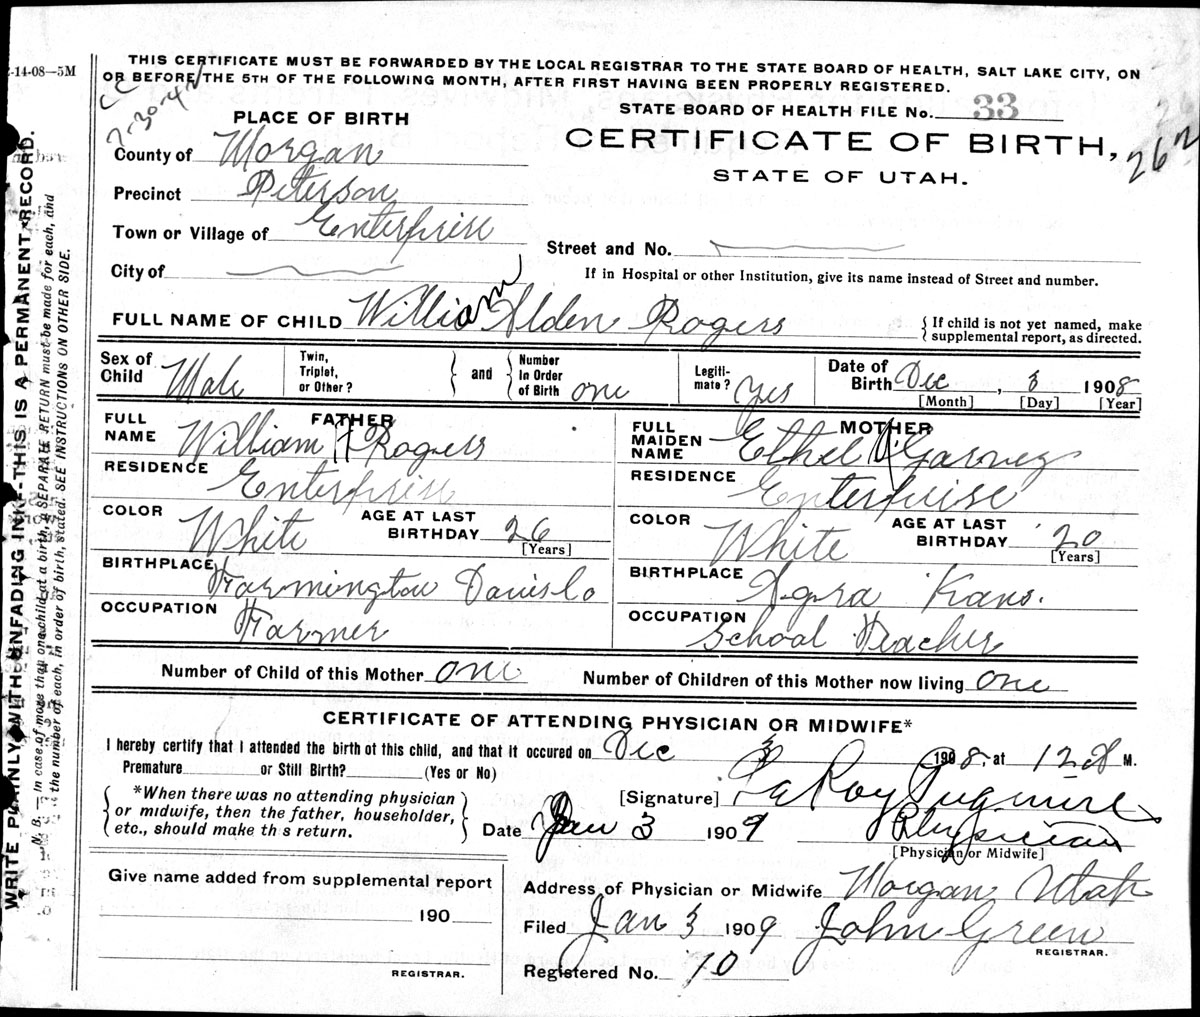 2-14-08—5M
THIS CERTIFICATE MUST BE FORWARDED BY THE LOCAL REGISTRAR TO THE STATE BOARD OF HEALTH, SALT LAKE CITY, ON
OR BEFORE THE 5TH OF THE FOLLOWING MONTH, AFTER FIRST HAVING BEEN PROPERLY REGISTERED.
CC
7-30-42
STATE BOARD OF HEALTH FILE No. 33
PLACE OF BIRTH
CERTIFICATE OF BIRTH,
262
STATE OF UTAH.
County of Morgan
Precinct Peterson
Town or Village of Enterprise
Street and No.
City of
If in Hospital or other Institution, give its name instead of Street and number.
FULL NAME OF CHILD William Alden Rogers
{ If child is not yet named, make
supplemental report, as directed.
Sex of Child Male
Twin, Triplet, or Other? } and { Number In Order of Birth one
Legiti-mate? Yes
Date of Birth Dec, 3 1908
[Month] [Day] [Year]
FATHER
FULL NAME William H Rogers
RESIDENCE Enterprise
COLOR White AGE AT LAST BIRTHDAY 26 [Years]
BIRTHPLACE Farmington Davis Co
OCCUPATION Farmer
MOTHER
FULL MAIDEN NAME Ethel Garney
RESIDENCE Enterprise
COLOR White AGE AT LAST BIRTHDAY 20 [Years]
BIRTHPLACE Agra Kans.
OCCUPATION School Teacher
Number of Child of this Mother one
Number of Children of this Mother now living one
CERTIFICATE OF ATTENDING PHYSICIAN OR MIDWIFE*
I hereby certify that I attended the birth of this child, and that it occured on Dec 3 1908, at 12 M.
Premature or Still Birth? (Yes or No)
{ *When there was no attending physician
or midwife, then the father, householder,
etc., should make th s return. }
[Signature] LeRoy Pugmire
Date Jan 3 1909 Physician
[Physician or Midwife]
Give name added from supplemental report
190
REGISTRAR.
Address of Physician or Midwife Morgan Utah
Filed Jan 3 1909 John Green
REGISTRAR.
Registered No. 10
WRITE PLAINLY WITH UNFADING INK—THIS IS A PERMANENT RECORD.
N. B.—In case of more than one child at a birth, a SEPARATE RETURN must be made for each, and
the number of each, in order of birth, stated. SEE INSTRUCTIONS ON OTHER SIDE.